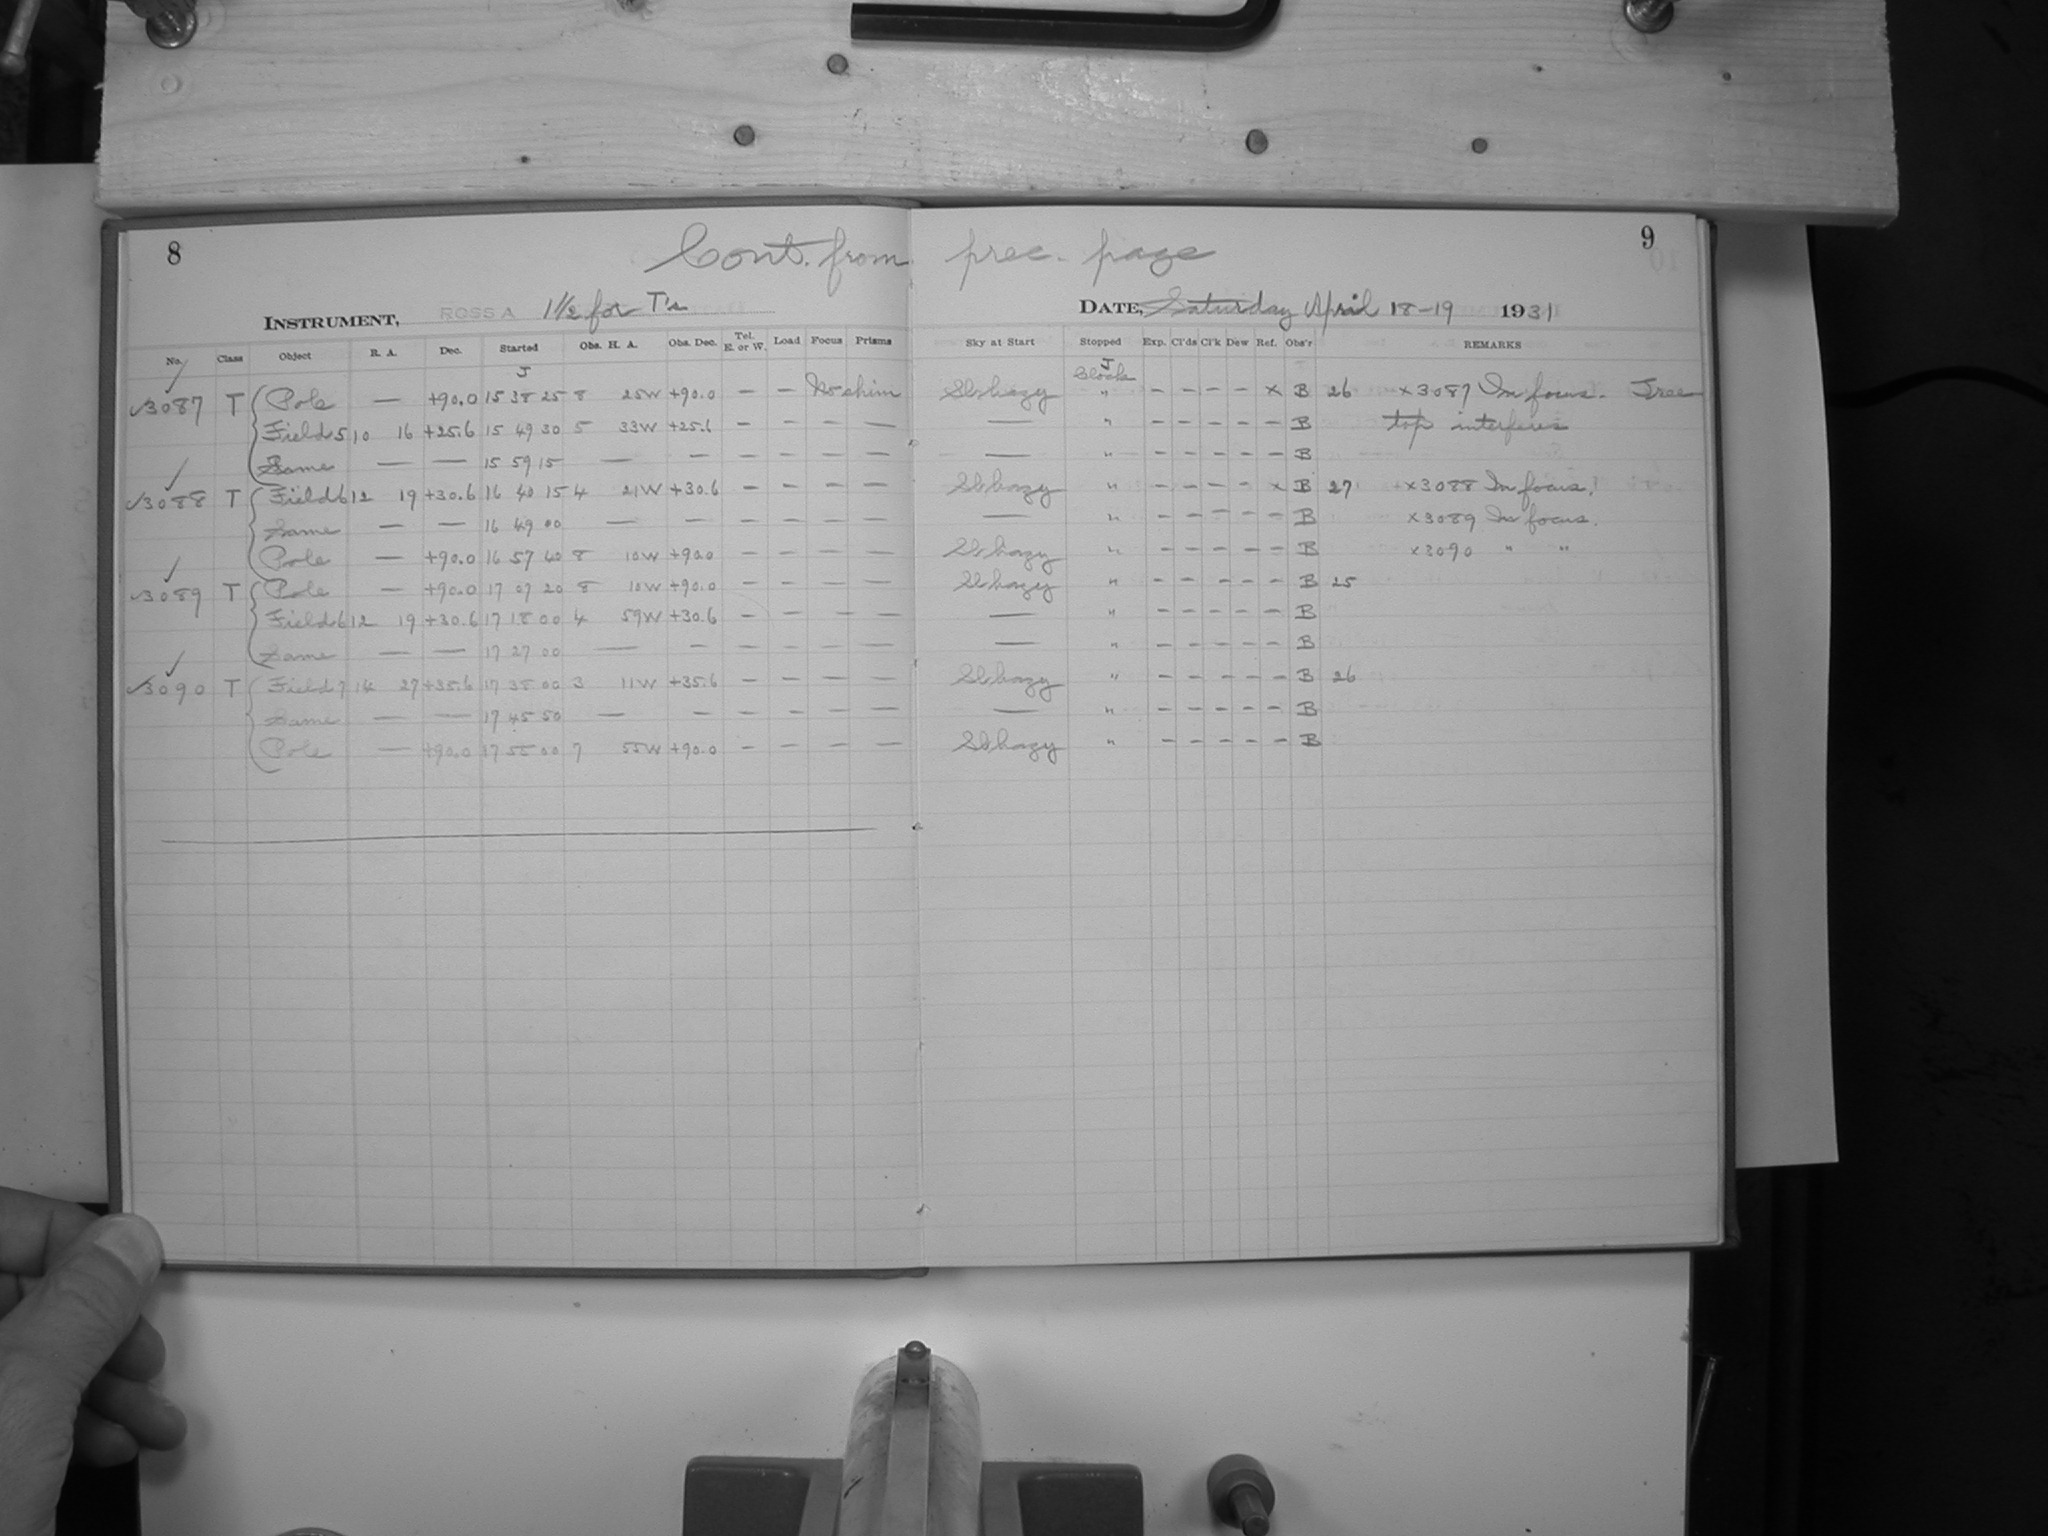 8 Cont. from prec. page 9
INSTRUMENT, ROSS A 1½ for T's DATE, Saturday April 18-19 1931
No. Class Object R. A. Dec. Started Obs. H. A. Obs. Dec. Tel. E. or W. Load Focus Prisms Sky at Start Stopped Exp. Cl'ds Cl'k Dew Ref. Obs'r REMARKS
J J
Clock
✓3087 T Pole — +90.0 15 38 25 8 25W +90.0 — — No shim Sl hazy " — — — — x B 26 x3087 In focus. Tree
Field 5 10 16 +25.6 15 49 30 5 33W +25.6 — — — — — " — — — — — B top interferes
Same — — 15 59 15 — — — — — — — " — — — — — B
✓3088 T Field 6 12 19 +30.6 16 40 15 4 21W +30.6 — — — — Sl hazy " — — — — x B 27 x3088 In focus.
Same — — 16 49 00 — — — — — — — " — — — — — B x3089 In focus.
Pole — +90.0 16 57 40 8 10W +90.0 — — — — Sl hazy " — — — — — B x3090 " "
✓3089 T Pole — +90.0 17 07 20 8 10W +90.0 — — — — Sl hazy " — — — — — B 25
Field 6 12 19 +30.6 17 18 00 4 59W +30.6 — — — — — " — — — — — B
Same — — 17 27 00 — — — — — — — " — — — — — B
✓3090 T Field 7 14 27 +35.6 17 38 00 3 11W +35.6 — — — — Sl hazy " — — — — — B 26
Same — — 17 45 50 — — — — — — — " — — — — — B
Pole — +90.0 17 55 00 7 55W +90.0 — — — — Sl hazy " — — — — — B